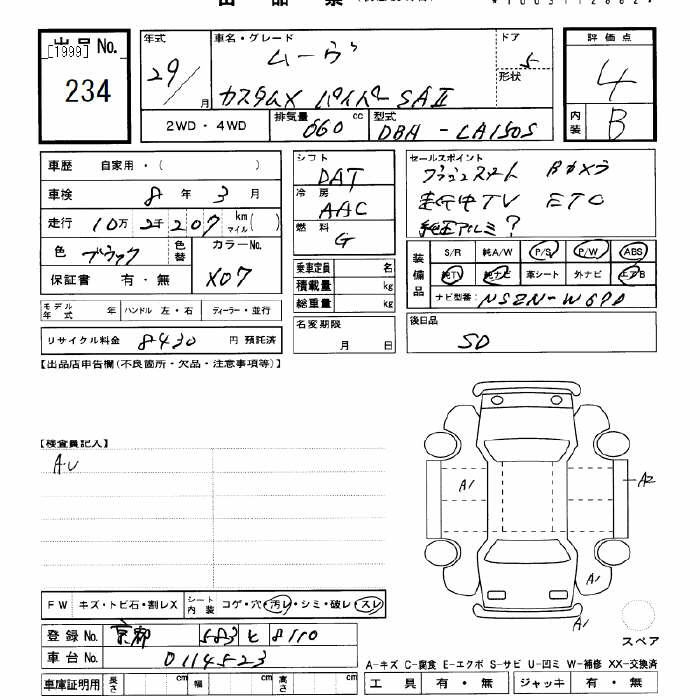 [1999]
出品 No.
234
年式
29/
月
車名・グレード
ムーヴ
カスタムX ハイパーSAⅡ
ドア
5
形状
評価点
4
内装
B
2WD・4WD
排気量
660
cc
型式
DBA-LA150S
車歴 自家用・( )
車検 8年 3月
走行 10万2千207 km マイル ( )
色 ブラック
色替
カラーNo.
X07
保証書 有・無
モデル年式 年
ハンドル 左・右
ディーラー・並行
リサイクル料金 8430 円 預託済
シフト
DAT
冷房
AAC
燃料
G
乗車定員 名
積載量 kg
総重量 kg
名変期限
月 日
セールスポイント
プッシュスタート Bカメラ
走行中TV ETC
純正アルミ?
装備品
S/R 純A/W P/S P/W ABS
純TV 純ナビ 革シート 外ナビ エアB
ナビ型番 NSZN-W69D
後日品
SD
【出品店申告欄(不良箇所・欠品・注意事項等)】
【検査員記入】
AU
A1
A2
A1
A1
スペア
FW キズ・トビ石・割レX
シート内装 コゲ・穴・汚レ・シミ・破レ・スレ
登録 No. 京都 583 ヒ 8110
車台 No. 0114523
車庫証明用 長さ cm 幅 cm 高さ cm
A-キズ C-腐食 E-エクボ S-サビ U-凹ミ W-補修 XX-交換済
工具 有・無 ジャッキ 有・無